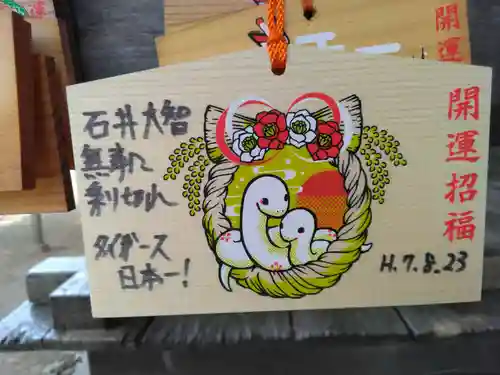 石井大智
無事に
乗り切れ
タイガース
日本一!
開運招福
H.7.8.23
開運